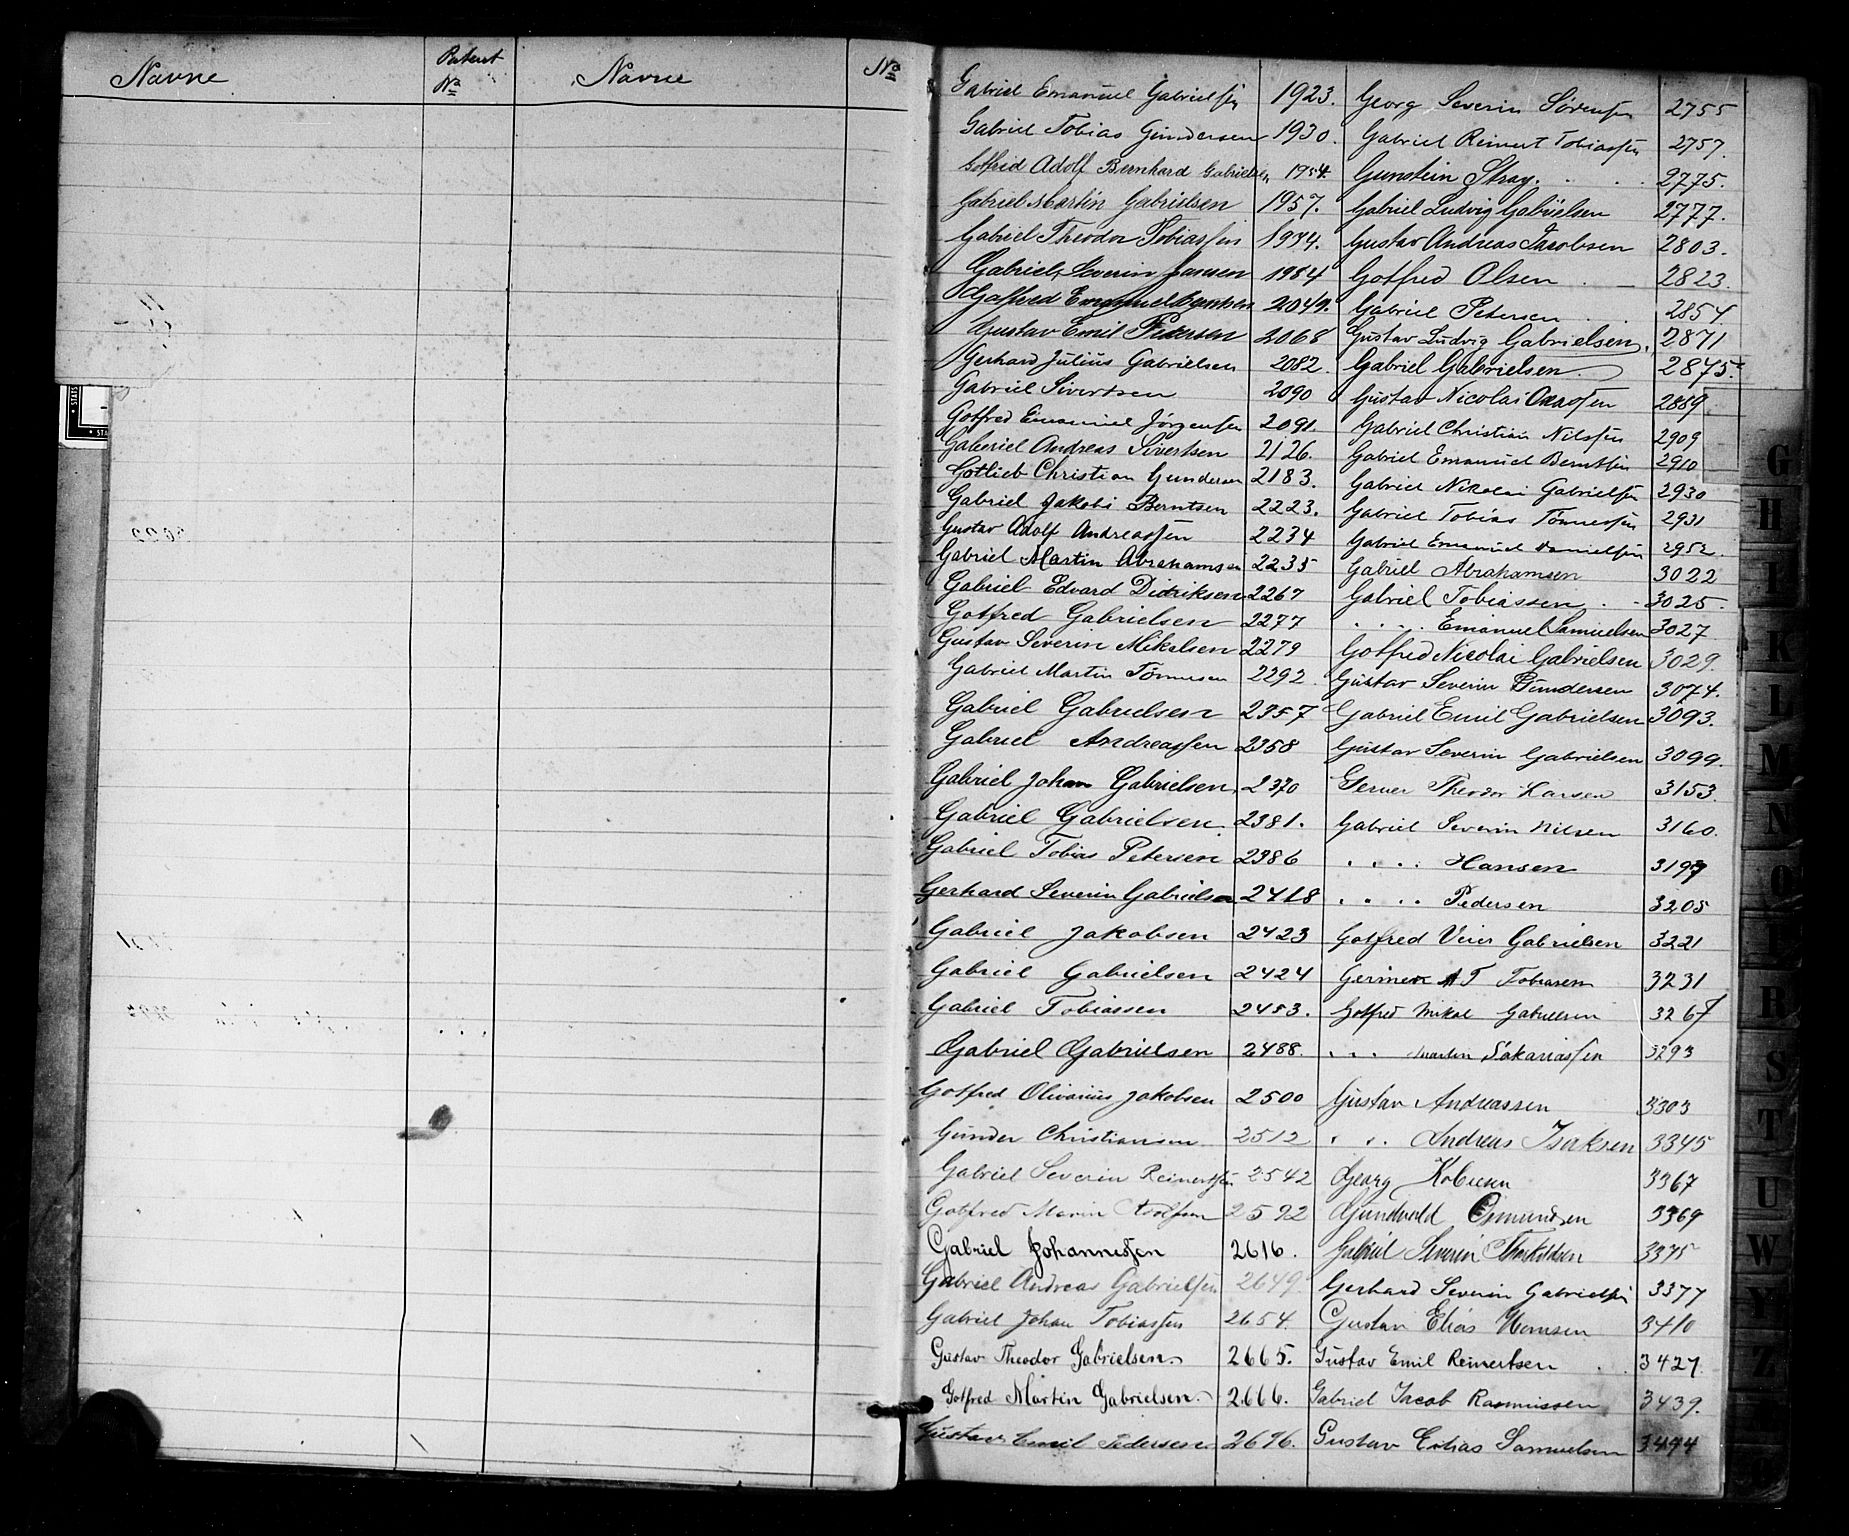 Navne Patent No Navne No
Gabriel Emanuel Gabrielsen 1923.
Gabriel Tobias Gundersen 1930.
Gotfred Adolf Bernhard Gabrielsen 1954.
Gabriel Martin Gabrielsen 1957.
Gabriel Theodor Tobiassen
Gabriel Severin Jansen 1984
Gotfred Emanuel 2049.
Gustav Emil Pedersen 2068
Gerhard Julius Gabrielsen 2082.
Gabriel Sivertsen 2090
Gotfred Emanuel Jørgensen 2091.
Gabriel Andreas Sivertsen 2126.
Gotlieb Christian Gundersen 2183.
Gabriel Jakobi Berntsen 2223.
Gustav Adolf Andreassen 2234
Gabriel Martin Abrahamsen 2235
Gabriel Edvard Didriksen 2267
Gotfred Gabrielsen 2277
Gustav Severin Mikelsen 2279
Gabriel Martin Tönnesen 2292.
Gabriel Gabrielsen 2357
Gabriel Andreassen 2358
Gabriel Johan Gabrielsen 2370
Gabriel Gabrielsen 2381.
Gabriel Tobias Petersen 2386
Gerhard Severin Gabrielsen 2418
Gabriel Jakobsen 2423
Gabriel Gabrielsen 2424
Gabriel Tobiassen 2453.
Gabriel Gabrielsen 2488.
Gotfred Olivarius Jakobsen 2500
Gunder Christiansen 2512
Gabriel Severin Reinertsen 2542
Gotfred Marin Adolfsen 2592
Gabriel Johannessen 2616.
Gabriel Andreas Gabrielsen 2649.
Gabriel Johan Tobiassen 2654.
Gustav Theodor Gabrielsen. 2665.
Gotfred Martin Gabrielsen. 2666.
Gustav Emil Pedersen 2696.
Georg Severin Sörensen 2755
Gabriel Reinert Tobiassen 2757.
Gunstein Stray. 2775.
Gabriel Ludvig Gabrielsen 2777.
Gustav Andreas Jacobsen 2803.
Gotfred Olsen 2823.
Gabriel Petersen 2854
Gustav Ludvig Gabrielsen. 2871
Gabriel Gabrielsen. 2875.
Gustav Nicolai Aasen 2889
Gabriel Christian Nilssen 2909
Gabriel Emanuel Berntsen 2910
Gabriel Nikolai Gabrielsen 2930
Gabriel Tobias Tönnessen 2931
Gabriel Emanuel Danielsen 2952.
Gabriel Abrahamsen 3022
Gabriel Tobiassen 3025.
. . . . Emanuel Samuelsen 3027
Gotfred Nicolai Gabrielsen 3029.
Gustav Severin Gundersen 3074.
Gabriel Emil Gabrielsen 3093.
Gustav Severin Gabrielsen 3099.
Theodor Hansen 3153.
Gabriel Severin Nilsen 3160.
. . . . Hansen
. . . . Pedersen 3205
Gotfred Veier Gabrielsen 3221
T Tobiasen 3231
Gotfred Mikal Gabrielsen 3267
. . . Martin Sakariassen 3293
Gustav Andreassen 3303
. . Andreas Isaksen 3345
Georg 3367
Gundvald Osmundsen 3369
Gabriel Severin Therkildsen 3375
Gerhard Severin Gabrielsen 3377
Gustav Elias 3410
Gustav Emil Reinertsen 3427.
Gabriel Jacob Rasmussen 3439.
Gustav Elias Samuelsen 3494
G
H
I
K
L
M
N
O
P
R
S
T
U
W
Y
Z
Ø